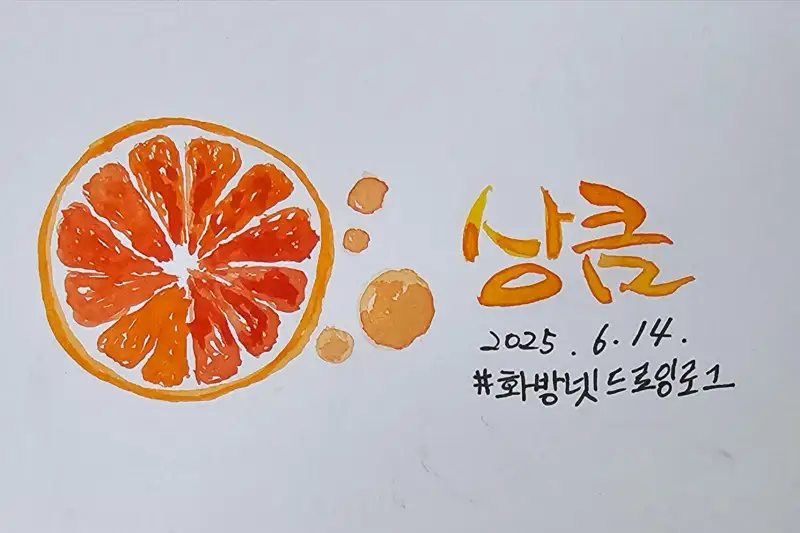 상큼
2025.6.14.
#화방넷드로잉로그